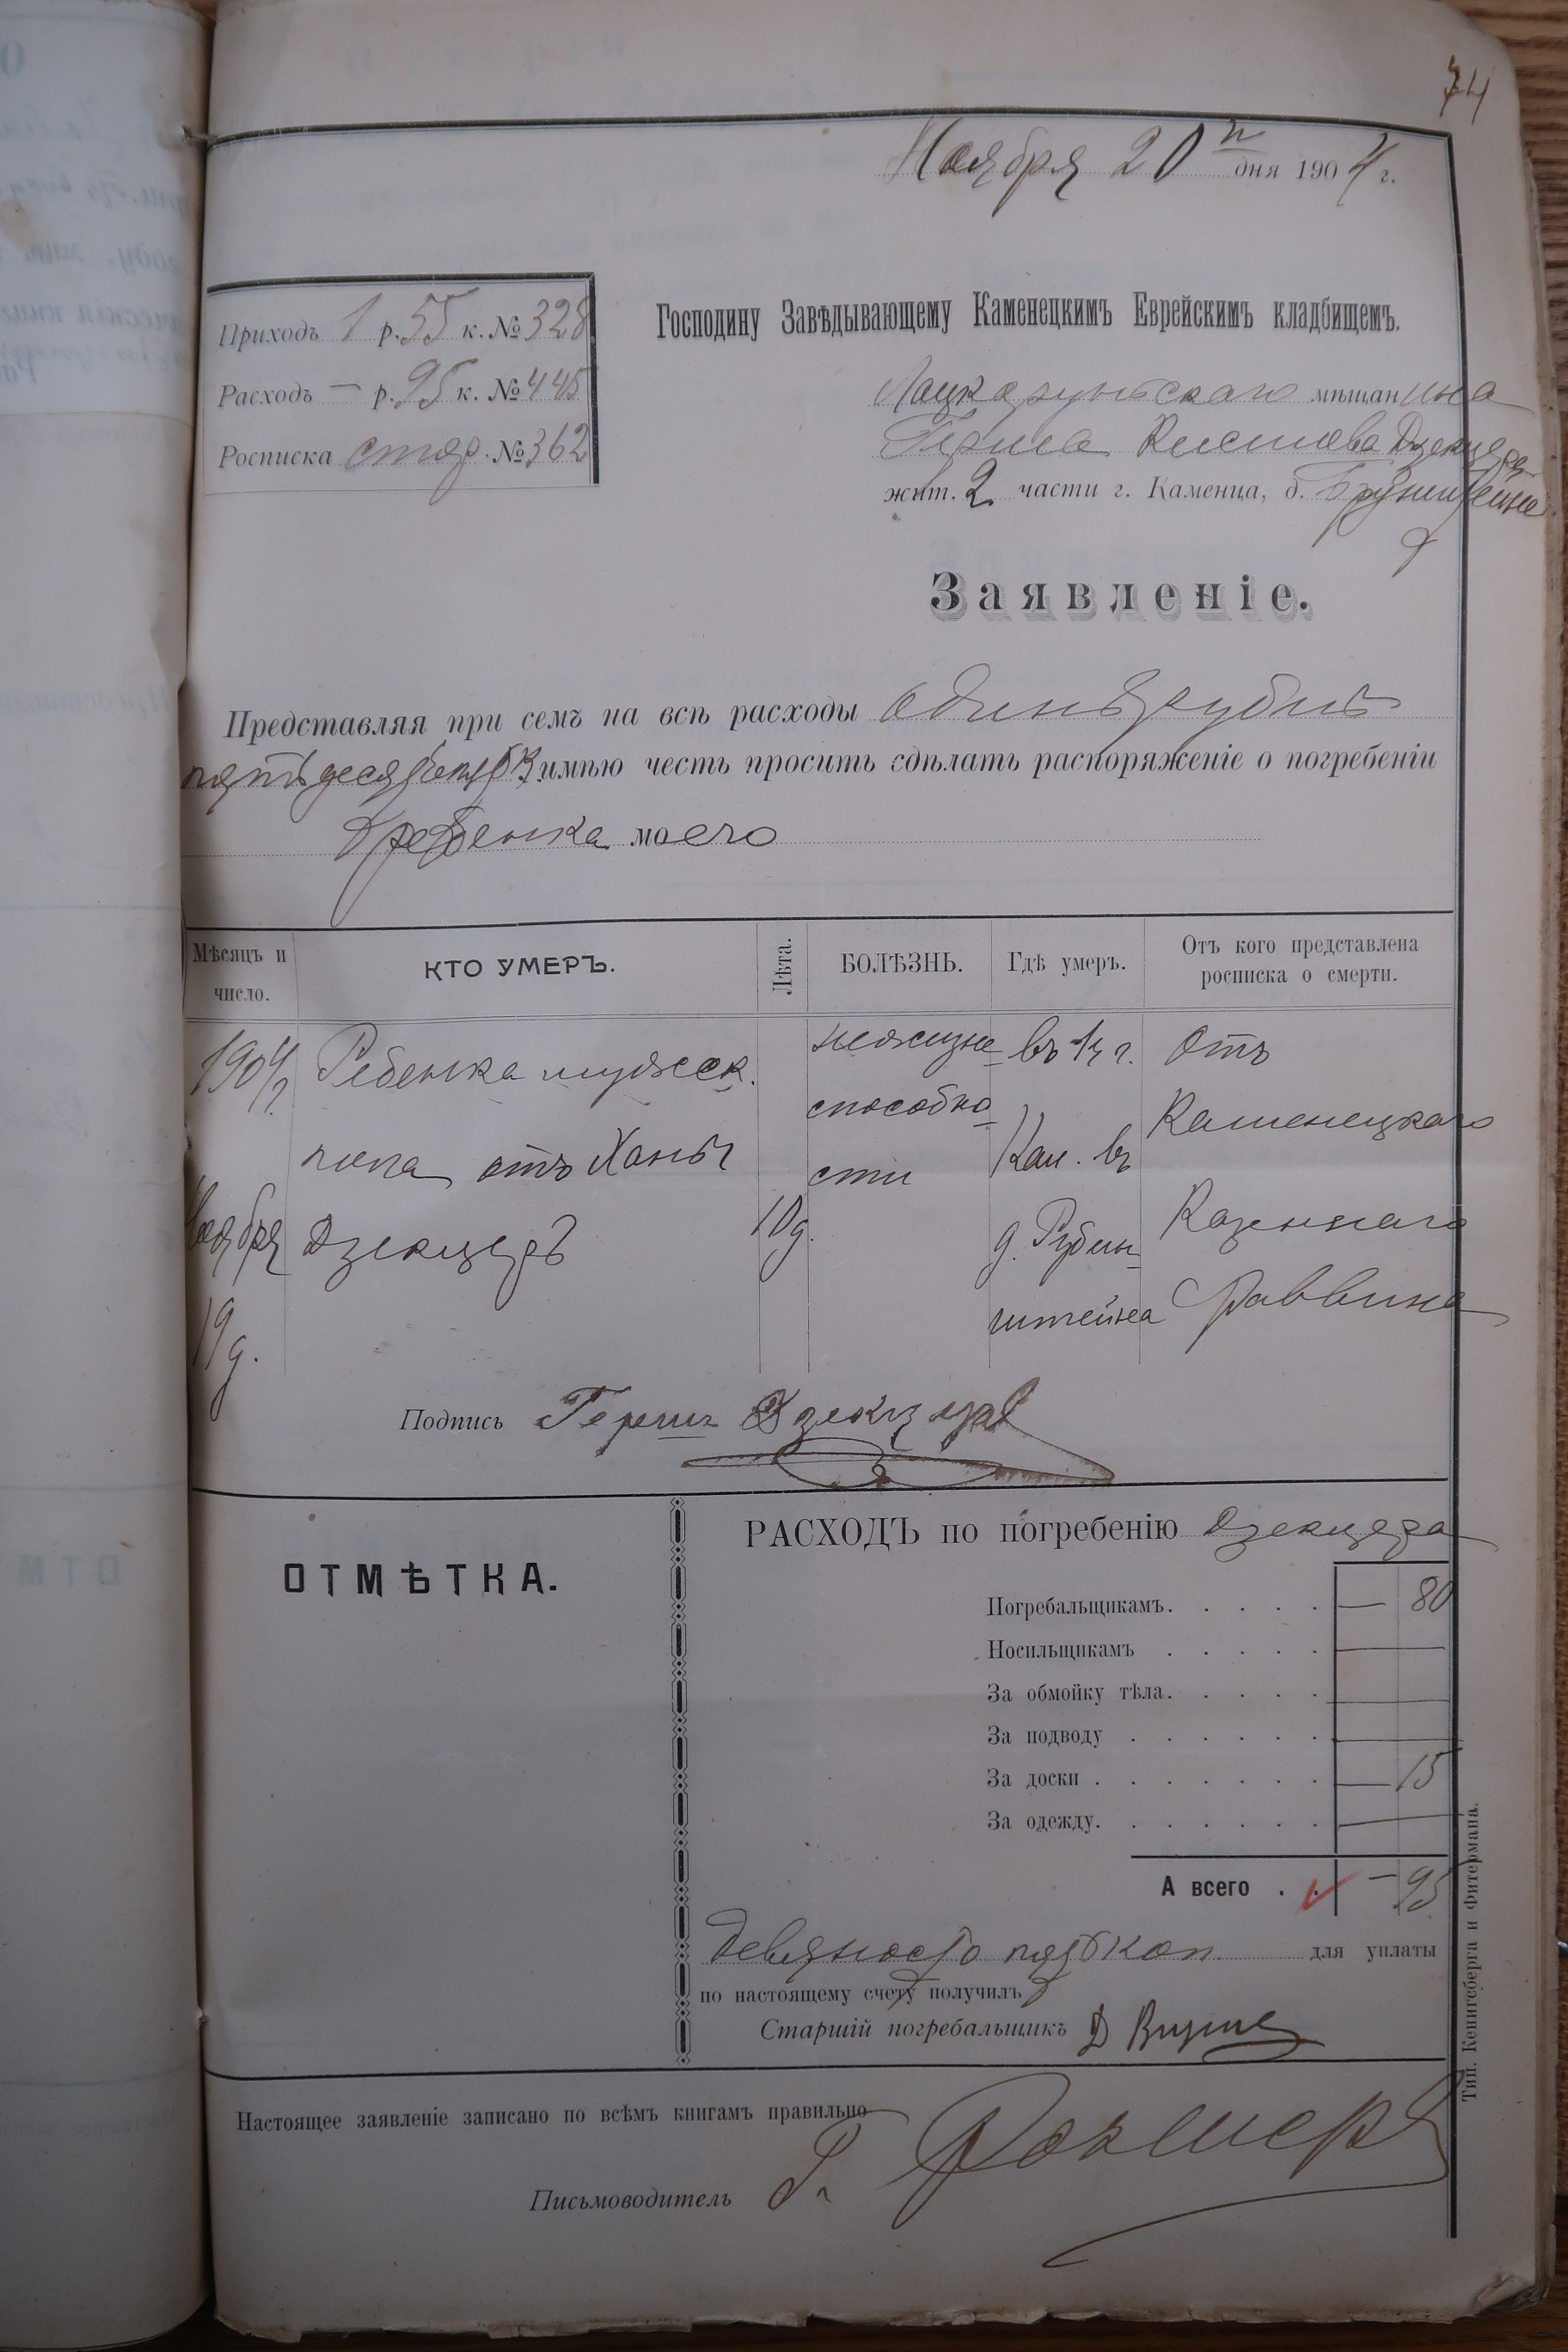 74
Ноября 20 дня 1904 г.
Приходъ 1 р. 55 к. № 328
Расходъ — р. 95 к. № 445
Росписка стар. № 362
Господину Завѣдывающему Каменецкимъ Еврейскимъ кладбищемъ.
мѣщанина
жит. 2 части г. Каменца, д.
Заявленіе.
Представляя при семъ на всѣ расходы одинъ рубль
пятьдесятъ имѣю честь просить сдѣлать распоряженіе о погребеніи
ребенка моего
Мѣсяцъ и число.
КТО УМЕРЪ.
Лѣта.
БОЛѢЗНЬ.
Гдѣ умеръ.
Отъ кого представлена росписка о смерти.
1904 г.
Ноября
19 д.
Ребенка мужеск.
пола отъ Ханы
Дзекцеръ
10 д.
нежизне-
способно-
сти
въ г.
Кам. въ
д. Рубин-
штейна
Отъ
Каменецкаго
Казеннаго
Раввина
Подпись Гершъ Дзекцеръ
ОТМѢТКА.
РАСХОДЪ по погребенію Дзекцера
Погребальщикамъ. . . . . — 80
Носильщикамъ . . . . . —
За обмойку тѣла. . . . . —
За подводу . . . . . . —
За доски . . . . . . . — 15
За одежду. . . . . . . —
А всего . . — 95
девяносто пять коп. для уплаты
по настоящему счету получилъ
Старшій погребальщикъ Д
Настоящее заявленіе записано по всѣмъ книгамъ правильно
Письмоводитель
Тип. Кенигсберга и Фитермана.